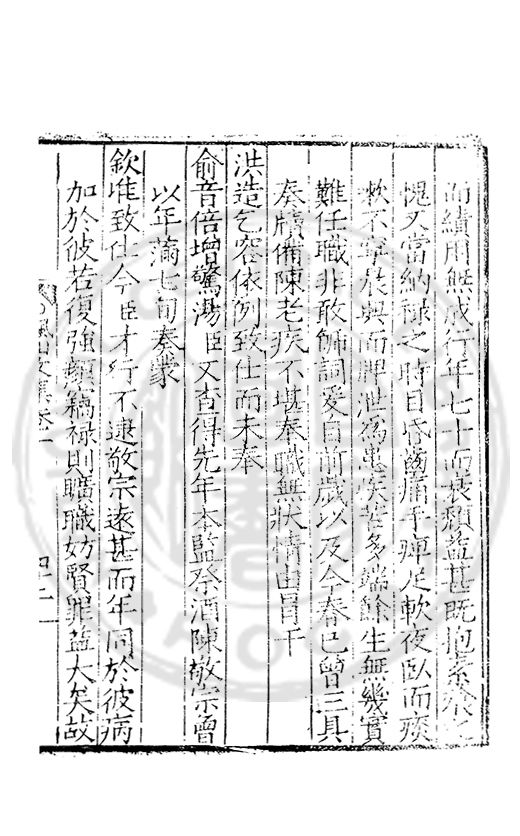 而績用無成行年七十而衰頹益甚既抱素飡之
愧又當納祿之時目昏齒痛手痺足軟夜臥而痰
嗽不寧晨興而脾泄為患疾苦多端餘生無幾實
難任職非敢飾詞爰自前歲以及今春已曾三具
奏牘備陳老疾不堪奉職無狀情由冒干
洪造乞容依例致仕而未奉
俞音倍增驚惕臣又查得先年本監祭酒陳敬宗曾
以年滿七旬奏蒙
欽准致仕今臣才行不逮敬宗遠甚而年同於彼病
加於彼若復強顏竊祿則曠職妨賢罪益大矣故
文集卷一
四十二